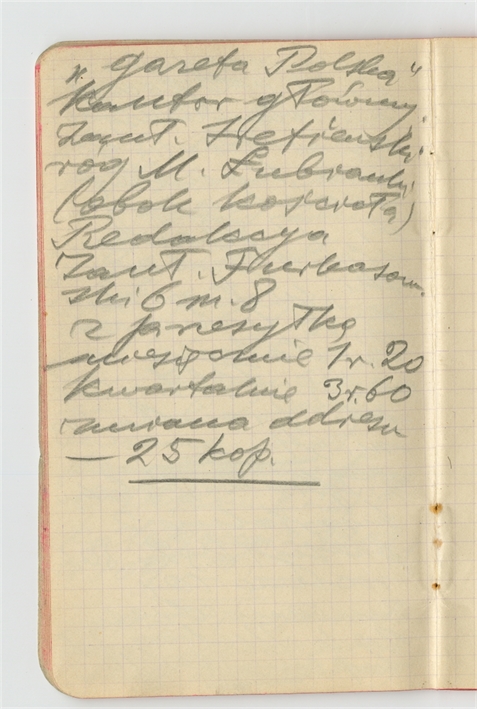 „Gazeta Polska"
Kantor główny
Zauł.
róg M. Lubranki
(obok kościoła)
Redakcya
Zauł. Furkasow-
ski 6 m. 8
z przesyłką
miesięcznie 1 r. 20
kwartalnie 3 r. 60
zmiana adresu
— 25 kop.